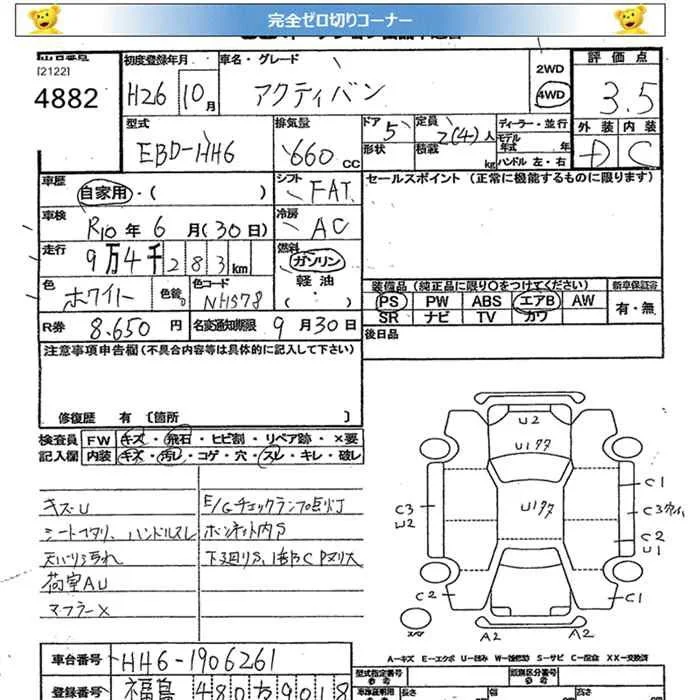 完全ゼロ切りコーナー
[2122]
4882
初度登録年月
H26 10月
車名・グレード
アクティバン
2WD
4WD
評価点
3.5
外装 内装
D C
型式
EBD-HH6
排気量
660 cc
ドア 5
形状
定員 2(4)人
積載 kg
ディーラー・並行
モデル年式 年
ハンドル 左・右
車歴
自家用・( )
シフト
FAT
セールスポイント (正常に機能するものに限ります)
車検
R10年6月(30日)
冷房
AC
走行
9万4千283km
燃料
ガソリン
軽油・
( )
色
ホワイト
色替
色コード
NH578
装備品(純正品に限り○をつけてください)
新車保証書
PS PW ABS エアB AW
SR ナビ TV カワ
有・無
R券 8.650円
名変通知期限 9月30日
後日品
注意事項申告欄(不具合内容等は具体的に記入して下さい)
修復歴 有 〔箇所 〕
検査員
記入欄
FW キズ・飛石・ヒビ割・リペア跡・×要
内装 キズ・汚レ・コゲ・穴・スレ・キレ・破レ
キズU
シートヘタリ、ハンドルスレ
天バリ汚れ
荷室AU
マフラーX
E/Gチェックランプ点灯
ボンネット内S
下廻りS、
U2
U1
U1
C3
W2
C2
C1
C3
C2
U1
C1
A2 A2
A—キズ E—エクボ U—凹み S—サビ XX—交換済
車台番号 HH6-1906261
登録番号 福島 480 9018
型式指定番号
類別区分番号
長さ
幅
高さ